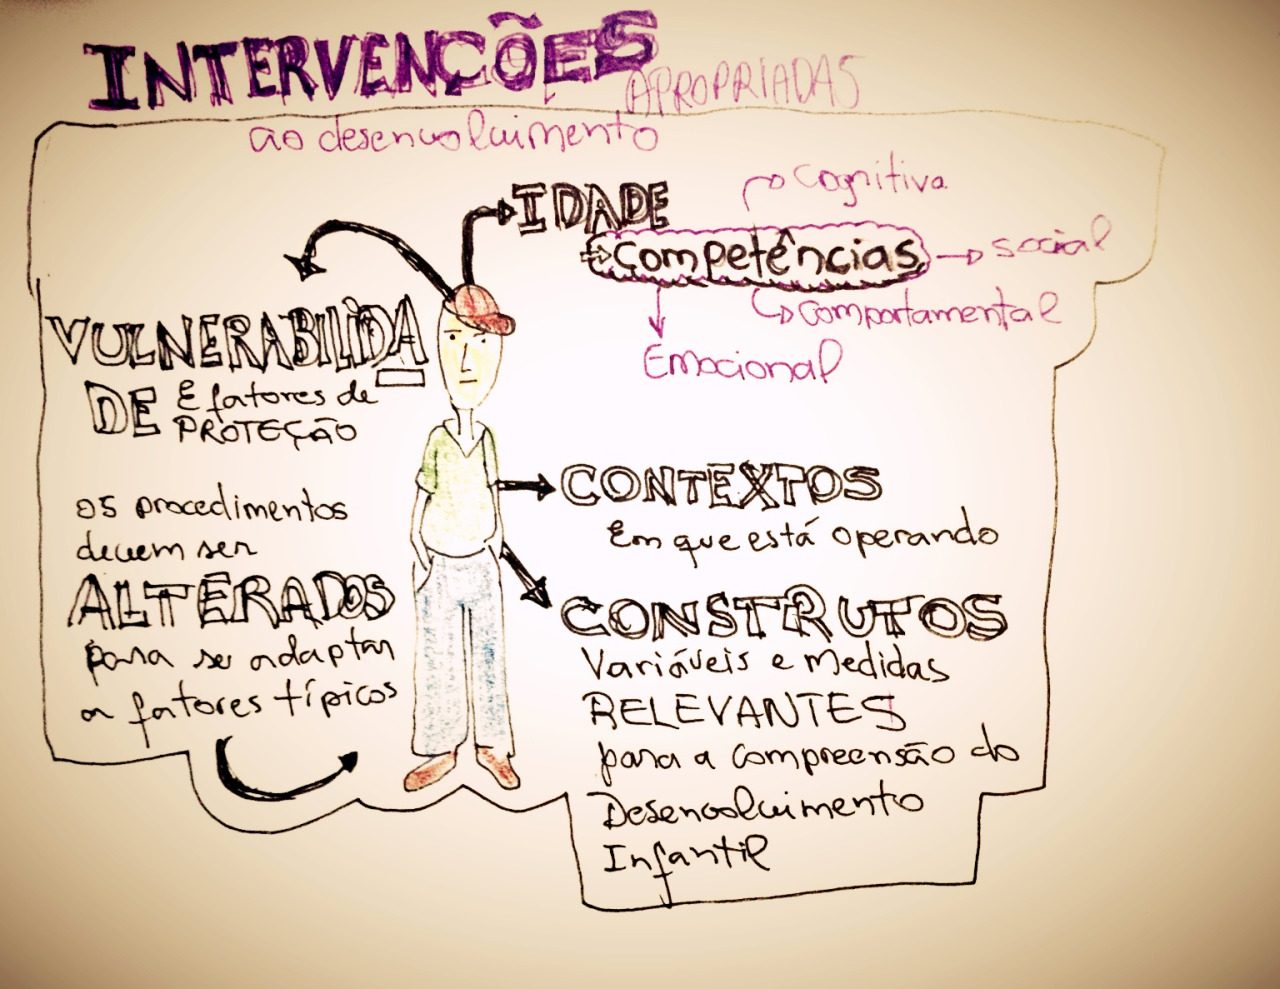 INTERVENÇÕES
APROPRIADAS
ao desenvolvimento
IDADE
Competências
Cognitiva
social
comportamental
Emocional
VULNERABILIDA
DE E fatores de
PROTEÇÃO
os procedimentos
devem ser
ALTERADOS
para se adaptar
a fatores típicos
CONTEXTOS
Em que está operando
CONSTRUTOS
Variáveis e medidas
RELEVANTES
para a compreensão do
Desenvolvimento
Infantil